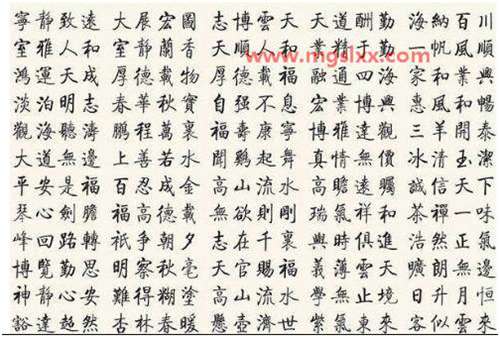 寧靜致遠 大展宏圖 志博雲天 天道酬勤 海納百川
www.mgslxx.com
室雅人和 室靜蘭香 順人和 業精于勤 帆風順
鴻運天成 厚德載物 厚德載福 融通四海 家業興
淡泊明志 春華秋實 自强不息 宏業博興 惠風和暢
觀海聽濤 鵬程萬裏 福壽康寧 博雅達觀 三羊開泰
大道無邊 上善若水 聞鷄起舞 真情無價 冰清玉潔
平安是福 百忍成金 高山流水 高瞻遠矚 誠信天下
琴心劍膽 福高德載 無欲則剛 瑞氣祥和 茶禪一味
峰回路轉 祇爭朝夕 志在千裏 與時俱進 浩然正氣
博覽勤思 明察秋毫 天官賜福 義薄雲天 曠朗無邊
神静心安 難得糊塗 高山流水 學無止境 日升月恒
豁達超然 杏林春暖 懸壺濟世 紫氣東來 客似雲來